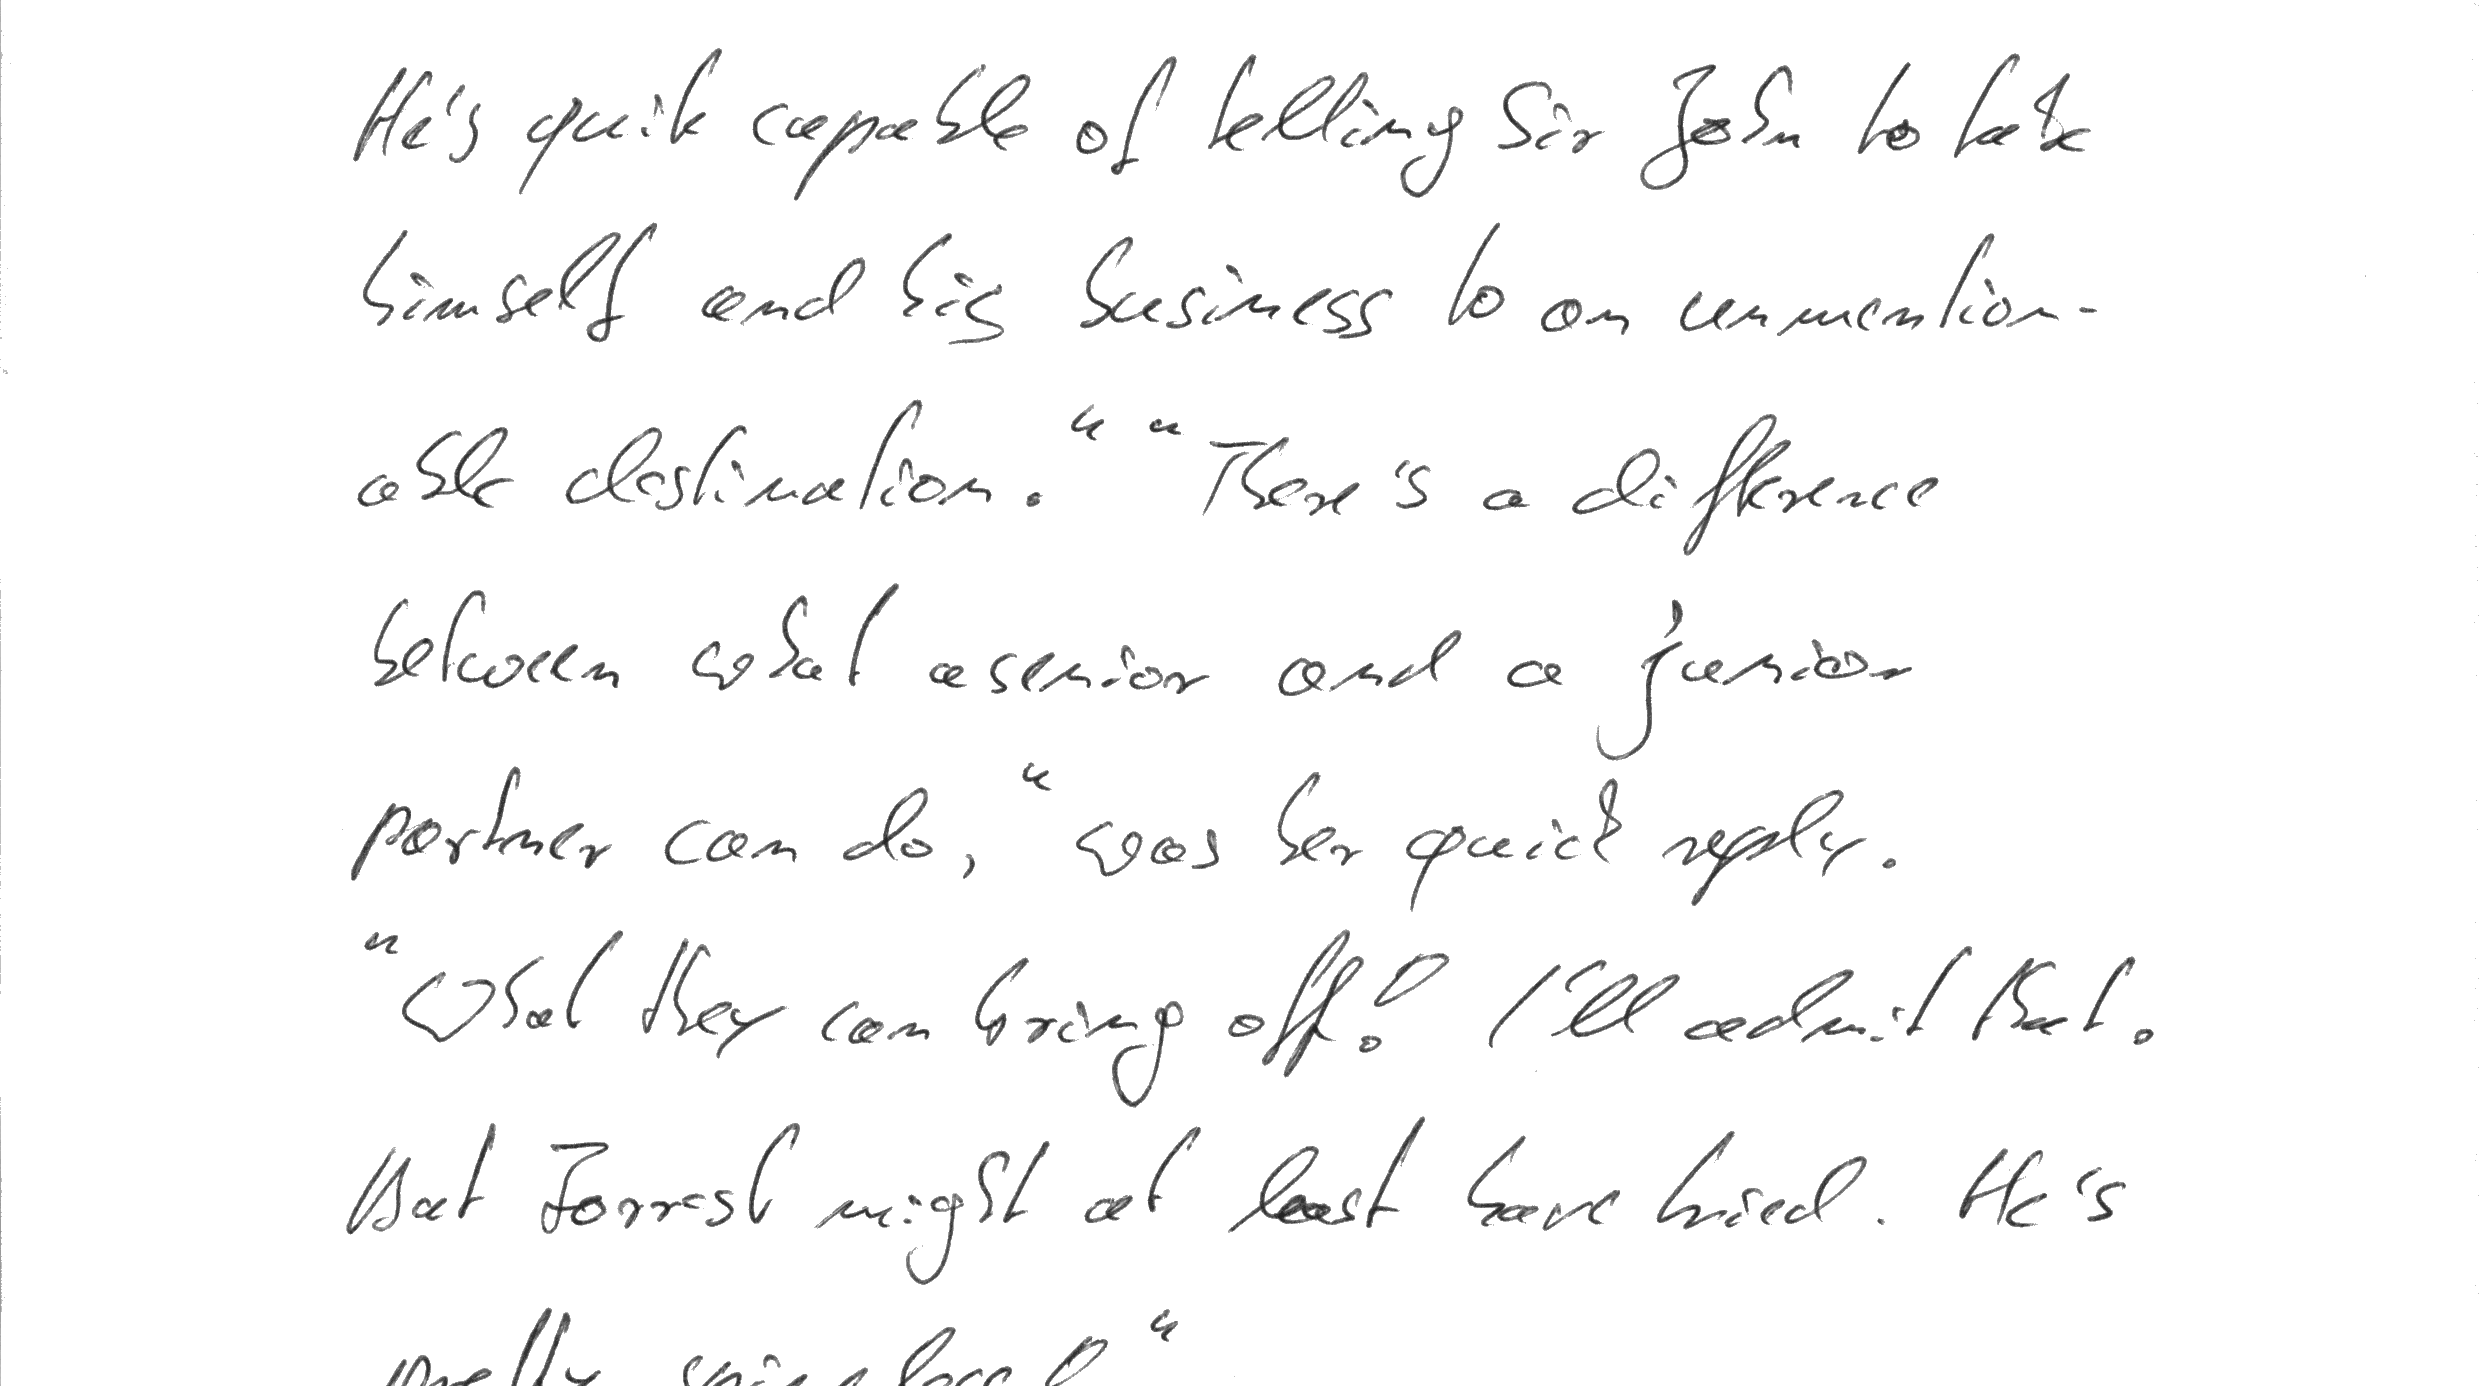 He's quite capable of telling Sir John to take
himself and his business to an unmention-
able destination." "There's a difference
between what a senior and a junior
partner can do," was her quick reply.
"What they can bring off? I'll admit that.
But Forrest might at least have tried. He's